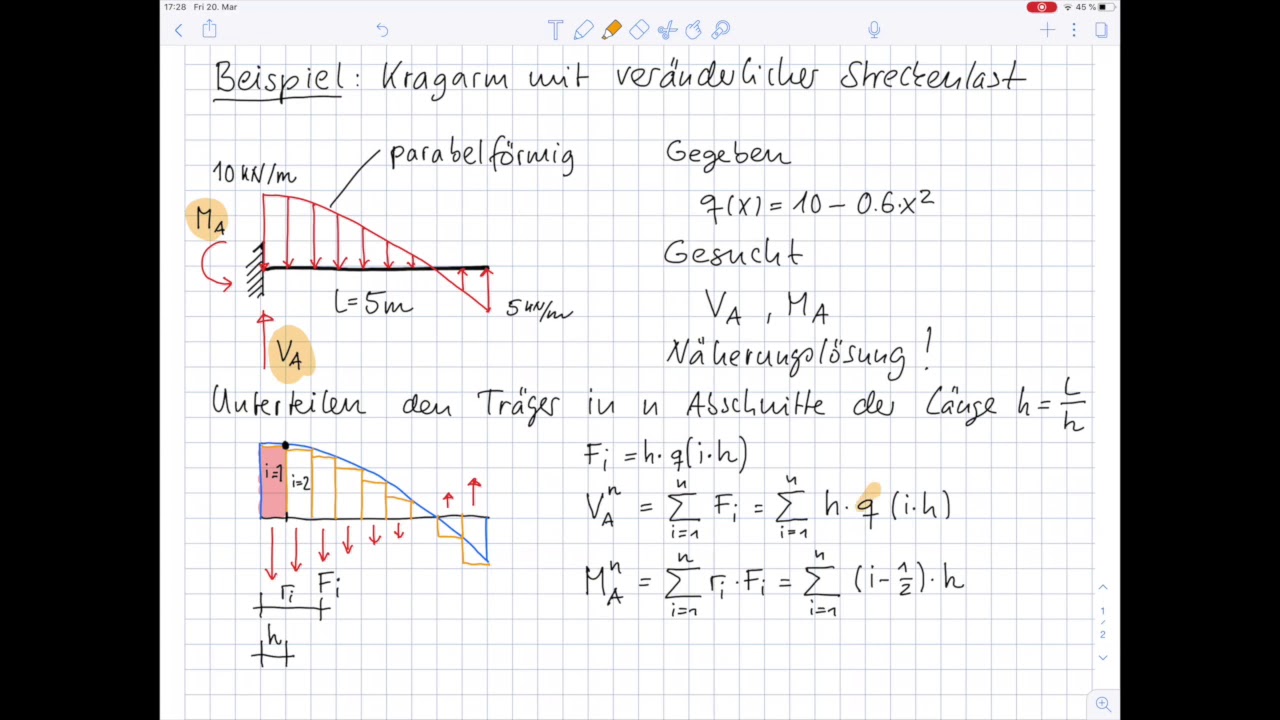 17:28 Fri 20. Mar
45 %
Beispiel: Kragarm mit veränderlicher Streckenlast
parabelförmig
10 kN/m
M_A
L = 5m
5 kN/m
V_A
Gegeben
q(x) = 10 - 0.6·x²
Gesucht
V_A , M_A
Näherungslösung!
Unterteilen den Träger in n Abschnitte der Länge h = L/h
i=1
i=2
r_i
F_i
h
F_i = h·q(i·h)
V_A^n = ∑_{i=1}^n F_i = ∑_{i=1}^n h·q(i·h)
M_A^n = ∑_{i=1}^n r_i·F_i = ∑_{i=1}^n (i-1/2)·h
1/2